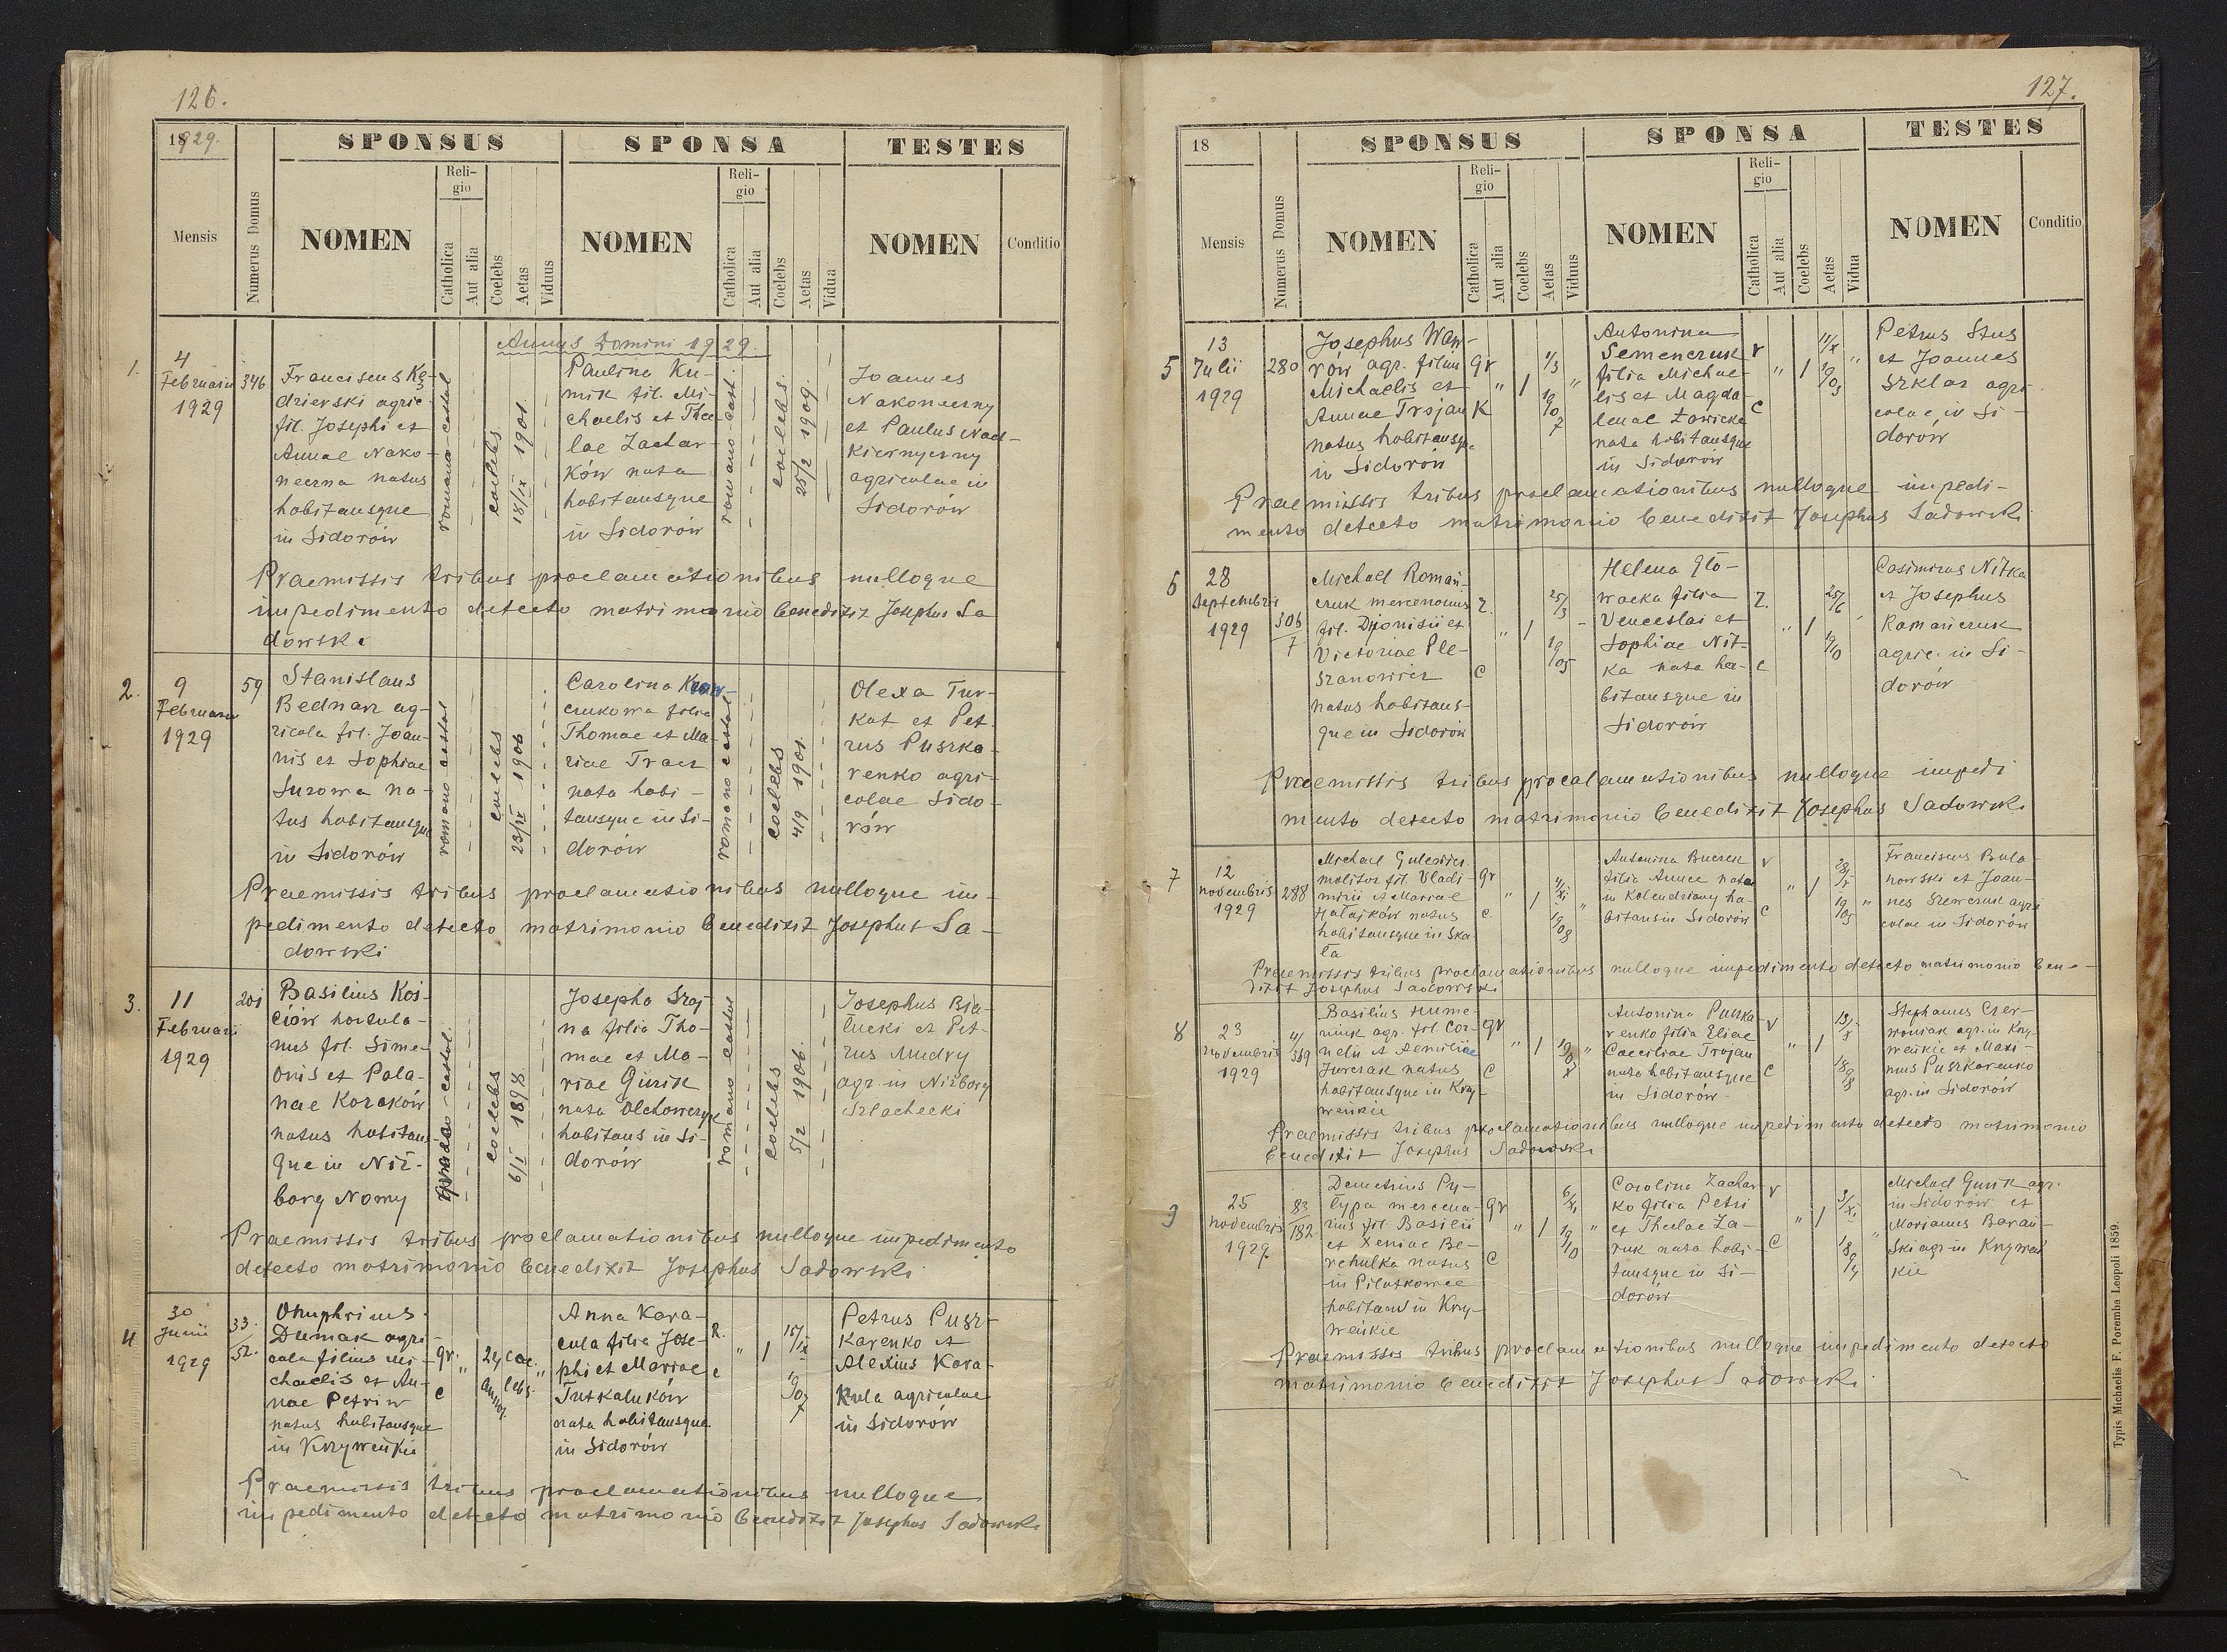 126.
1929.
SPONSUS
SPONSA
TESTES
Mensis
Numerus Domus
NOMEN
Religio
Catholica
Aut alia
Coelebs
Aetas
Viduus
NOMEN
Religio
Catholica
Aut alia
Coelebs
Aetas
Vidua
NOMEN
Conditio
Annus Domini 1929.
1.
4
Februarii
1929
346
Franciscus Kę-
dzierski agric.
fil. Josephi et
Annae Nako-
neczna natus
habitansque
in Sidorów
romano-cathol
coelebs
18/IX 1901.
Paulina Ku-
mik fil. Mi-
chaelis et Thec-
lae Zachar-
ków nata
habitansque
in Sidorów
romano-cath.
coelebs.
25/2 1909.
Joannes
Nakoneczny
et Paulus Nad-
kiernyczny
agricolae in
Sidorów
Praemissis tribus proclamationibus nulloque
impedimento detecto matrimonio benedixit Josephus Sa
dowski
2.
9
Februarii
1929
59
Stanislaus
Bednarz ag-
ricola fil. Joan-
nis et Sophiae
Surowa na-
tus habitansque
in Sidorów
romano-cathol
coelebs
23/IV 1906
Carolina Kraw-
czukowa filia
Thomae et Ma-
riae Tracz
nata habi-
tansque in Si-
dorów
romano cathol
coelebs
4/9 1901.
Olexa Tur-
kot et Pet-
rus Puszka-
renko agri-
colae Sido-
rów
Praemissis tribus proclamationibus nulloque im-
pedimento detecto matrimonio benedixit Josephus Sa-
dowski
3.
11
Februarii
1929
201
Basilius Koś-
ciów hortula-
nus fil. Sime-
onis et Pala-
nae Kozaków
natus habitans-
que in Niż-
borg Nowy
graeco-cathol.
coelebs
6/I 1898.
Josepha Szaj-
na filia Tho-
mae et Ma-
riae Gurik
nata Olchowczyk
habitans in Si-
dorów
romano cathol
coelebs
5/2 1906.
Josephus Bia-
łucki et Pet-
rus Mudry
agr. in Niżborg
Szlachecki
Praemissis tribus proclamationibus nulloque impedimento
detecto matrimonio benedixit Josephus Sadowski
4
30
Junii
1929
33.
52.
Onuphrius
Dumak agri-
cola filius Mi-
chaelis et An-
nae Petriw
natus habitansque
in Krzyweńkie
gr.
c
24
annor.
coe-
lebs.
Anna Kara-
cula filia Jose-
phi et Mariae
Tutkaluków
nata habitansque
in Sidorów
R.
c
"
1
15/IX
1907
Petrus Pusz-
karenko et
Alexius Kara-
kula agricolae
in Sidorów
Praemissis tribus proclamationibus nulloque
impedimento detecto matrimonio benedixit Josephus Sadowski
127.
18
SPONSUS
SPONSA
TESTES
Mensis
Numerus Domus
NOMEN
Religio
Catholica
Aut alia
Coelebs
Aetas
Viduus
NOMEN
Religio
Catholica
Aut alia
Coelebs
Aetas
Vidua
NOMEN
Conditio
5
13
Julii
1929
280
Josephus Waw-
rów agr. filius
Michaelis et
Annae Trojan
natus habitansque
in Sidorów
gr
K
"
1
1/3
1907
"
Antonina
Semenczuk
filia Michae-
lis et Magda-
lenae Ławicka
nata habitansque
in Sidorów
r
c
"
1
11/X
1903
"
Petrus Stus
et Joannes
Szklar agri-
colae in Si-
dorów
Praemissis tribus proclamationibus nulloque impedi-
mento detecto matrimonio benedixit Josephus Sadowski
6
28
Septembris
1929
306
7
Michael Roman-
czuk mercenarius
fil. Dyonisii et
Victoriae Ple-
szanowicz
natus habitans-
que in Sidorów
r.
c
"
1
25/3
1905
Helena Gło-
wacka filia
Venceslai et
Sophiae Nit-
ka nata ha-
bitansque in
Sidorów
r.
c
"
1
25/6
1910
Casimirus Nitka
et Josephus
Romańczuk
agric. in Si-
dorów
Praemissis tribus procalamationibus nulloque impedi
mento detecto matrimonio benedixit Josephus Sadowski
7
12
novembris
1929
288
Michael Gulewicz
molitor fil. Vladi-
mirii et Mariae
Hałajków natus
habitansque in Ska-
ła
gr
c
"
1
11/XI
1908
"
Antonina Buczek
filia Annae nata
in Kolendziany ha-
bitans in Sidorów
r
c
"
1
28/X
1905
"
Franciscus Bula-
nowski et Joan-
nes Szewczuk agri
colae in Sidorów
Praemissis tribus proclamationibus nulloque impedimento detecto matrimonio bene-
dixit Josephus Sadowski
8
23
novembris
1929
11/
369
Basilius Hume-
niuk agr. fil. Cor-
nelii et Aemiliae
Jurczak natus
habitansque in Krzy-
weńkie
gr
c
"
1
"
Antonina Puszka-
renko filia Eliae
Caeciliae Trojan
nata habitansque
in Sidorów
r
c
"
1
13/X
1898
Stephanus Czer-
woniak agr. in Krzy-
weńkie et Maxi-
mus Puszkarenko
agr. in Sidorów
Praemissis tribus proclamationibus nulloque impedimento detecto matrimonio
benedixit Josephus Sadowski
9
25
novembris
1929
83
182
Demetrius Py-
lypa mercena-
rius fil. Basilii
et Xeniae Be-
rehulka natus
in Pilatkowce
habitans in Krzy-
weńkie
gr
c
"
1
6/XI
1910
"
Carolina Zachar-
ko filia Petri
et Theclae Za-
ruk nata habi-
tansque in Si-
dorów
r
c
"
1
3/XI
1894
"
Michael Gurik agr.
in Sidorów et
Marianus Baran-
ski agr. in Krzyweń
kie
Praemissis tribus proclamationibus nulloque impedimento detecto
matrimonio benedixit Josephus Sadowski.
Typis Michaelis F. Poremba Leopoli 1859.